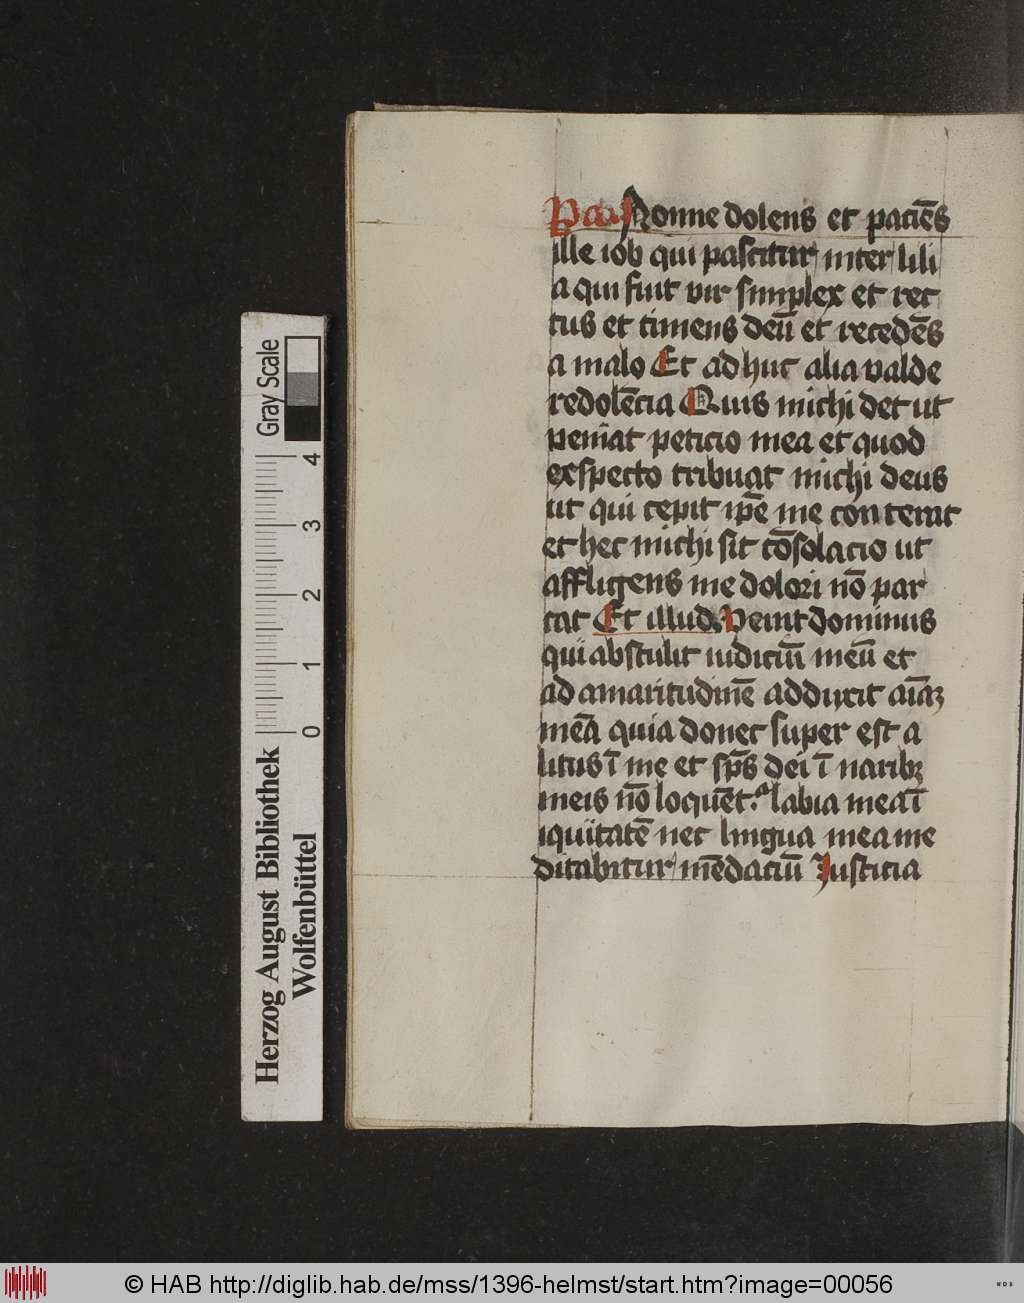 Nonne dolens et paciē̄s
ille iob qui pascitur inter lili
a qui fuit vir simplex et rec
tus et timens deū et recedēs
a malo Et ad huc alia valde
redolēcia Quis michi det ut
veniat peticio mea et quod
exspecto tribuat michi deus
ut qui cepit ip̄e me conterat
et hec michi sit cōsolacio ut
affligens me dolori nō par
cat Et illud. Veuit dominus
qui abstulit iudiciū meū et
ad amaritudinē adduxit aīaꝫ
meā quia donec super est a
litus ī me et sp̄s dei ī naribꝫ
meis nō loquēt.ᵃ labia mea ī
iquitatē nec lingua mea me
ditabitur mēdaciū Iusticia
Herzog August Bibliothek
Wolfenbüttel
0 1 2 3 4
Gray Scale
© HAB http://diglib.hab.de/mss/1396-helmst/start.htm?image=00056